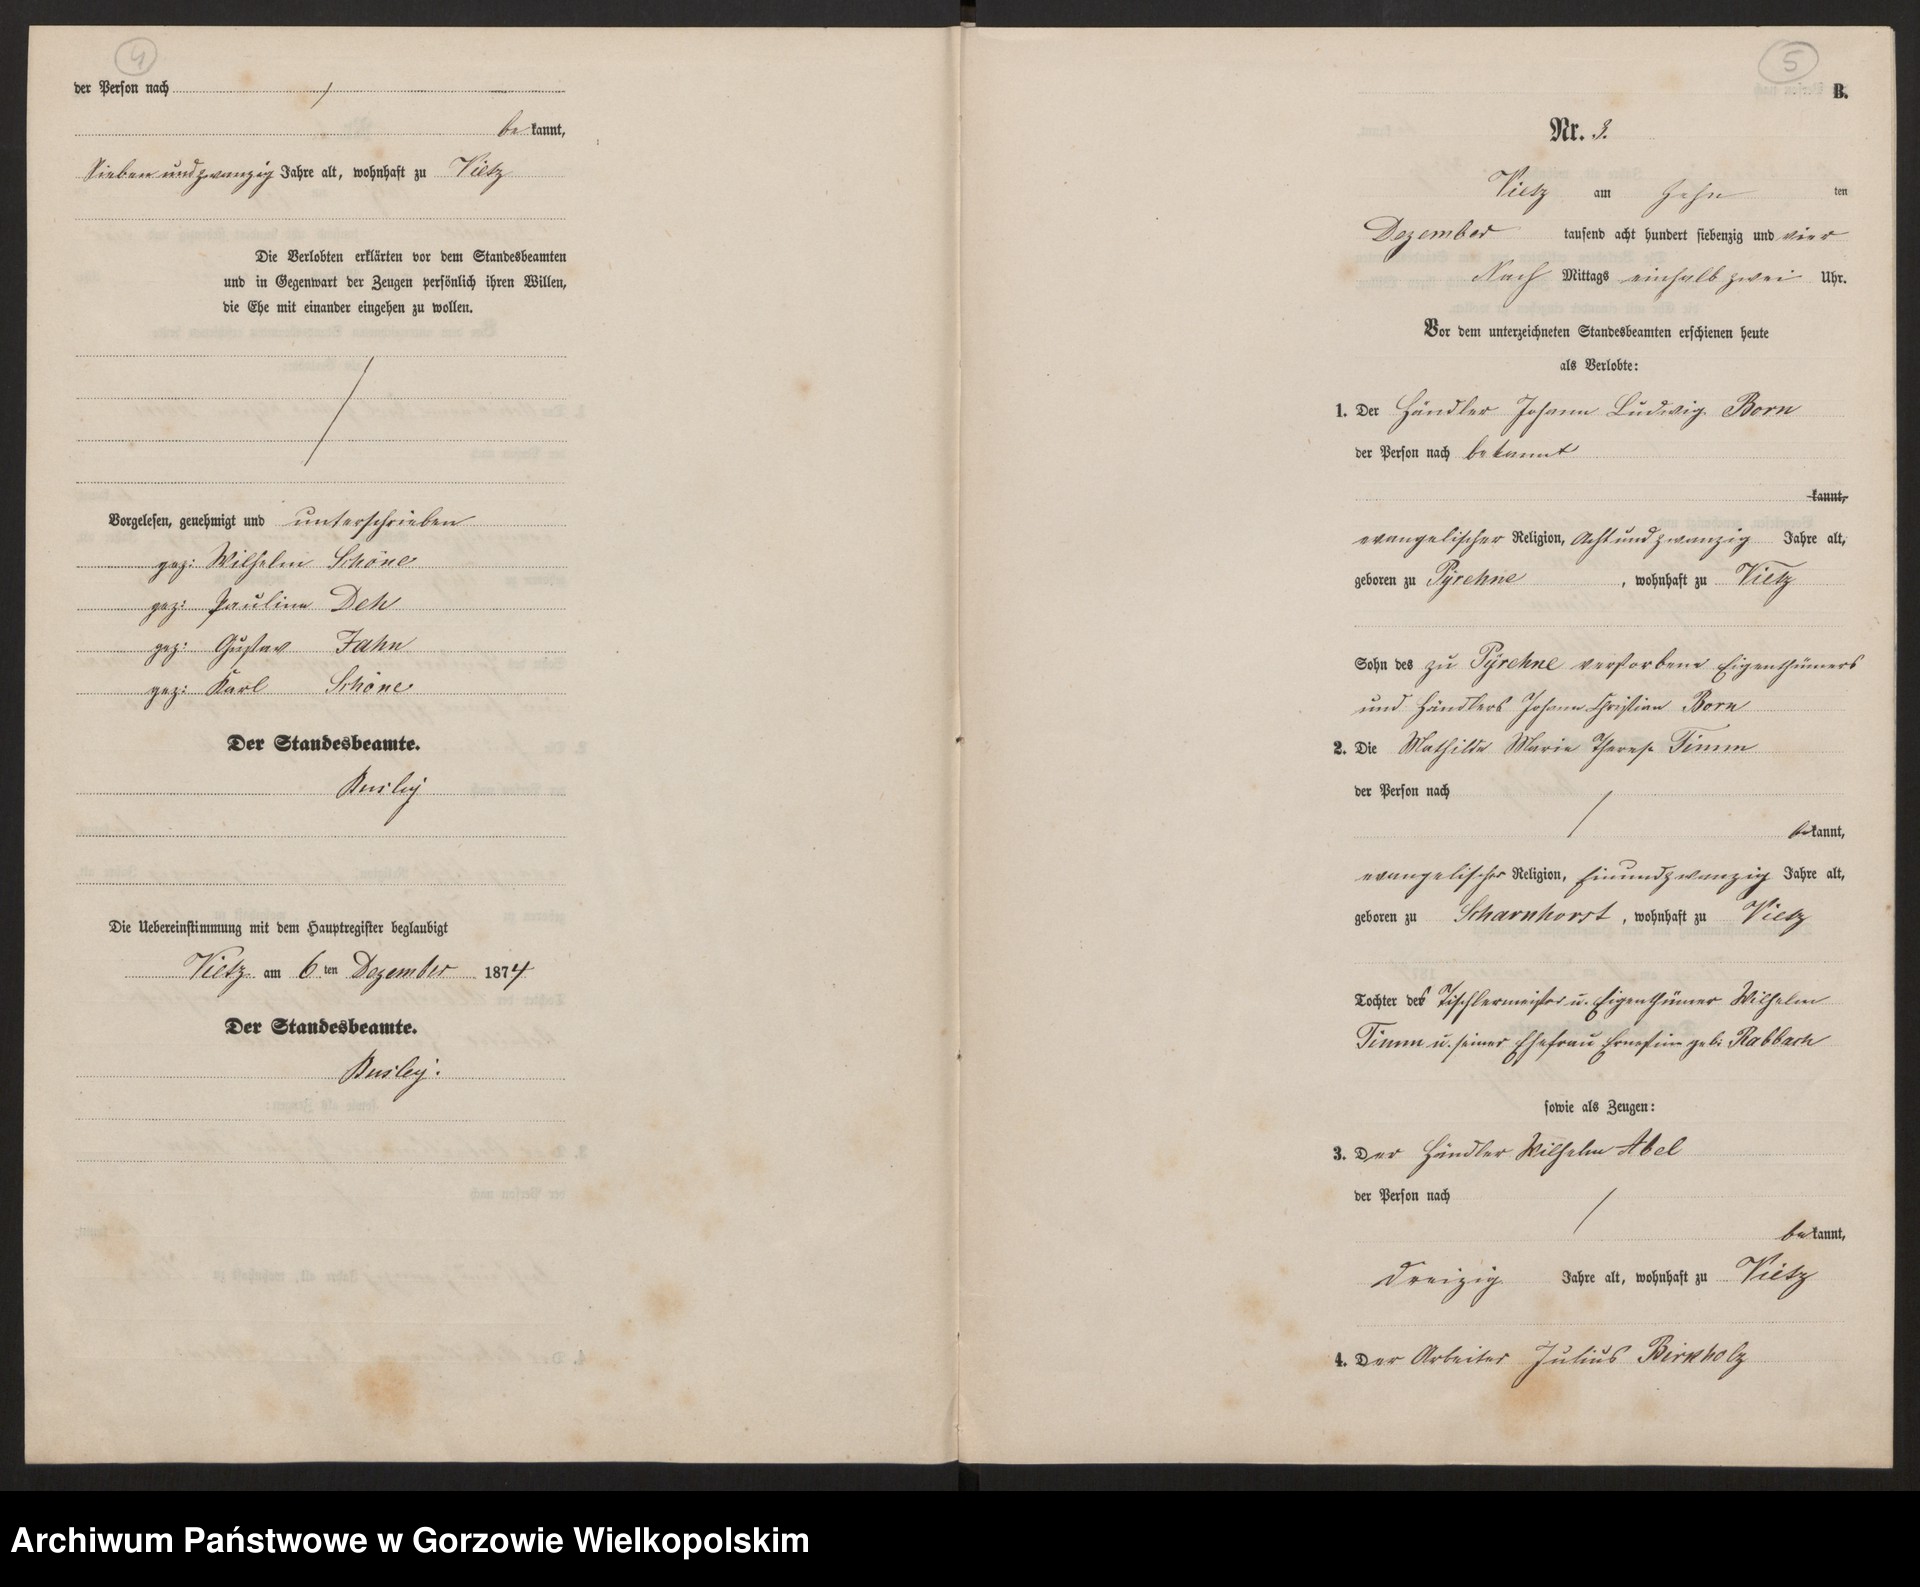 4
der Person nach
be kannt,
Sieben und zwanzig Jahre alt, wohnhaft zu Vietz
Die Verlobten erklärten vor dem Standesbeamten
und in Gegenwart der Zeugen persönlich ihren Willen,
die Ehe mit einander eingehen zu wollen.
Vorgelesen, genehmigt und unterschrieben
gez: Wilhelm Schöne
gez: Pauline Deh
gez: Gustav Jahn
gez: Karl Schöne
Der Standesbeamte.
Busley
Die Uebereinstimmung mit dem Hauptregister beglaubigt
Vietz am 6 ten Dezember 1874
Der Standesbeamte.
Busley.
5
B.
Nr. 3.
Vietz am zehn ten
Dezember tausend acht hundert siebenzig und vier
Nach Mittags einhalb zwei Uhr.
Vor dem unterzeichneten Standesbeamten erschienen heute
als Verlobte:
1. Der Händler Johann Ludwig Born
der Person nach bekannt
kannt,
evangelischer Religion, Acht und zwanzig Jahre alt,
geboren zu Pyrehne, wohnhaft zu Vietz
Sohn des zu Pyrehne verstorbene Eigenthümers
und Händlers Johann Christian Born
2. Die Mathilde Marie Therese Timm
der Person nach
bekannt,
evangelischer Religion, Einundzwanzig Jahre alt,
geboren zu Scharnhorst, wohnhaft zu Vietz
Tochter des Tischlermeister u. Eigenthümer Wilhelm
Timm u. seiner Ehefrau Ernestine geb: Rabbach
sowie als Zeugen:
3. Der Händler Wilhelm Abel
der Person nach
bekannt,
dreizig Jahre alt, wohnhaft zu Vietz
4. Der Arbeiter Julius Birkholz
Archiwum Państwowe w Gorzowie Wielkopolskim